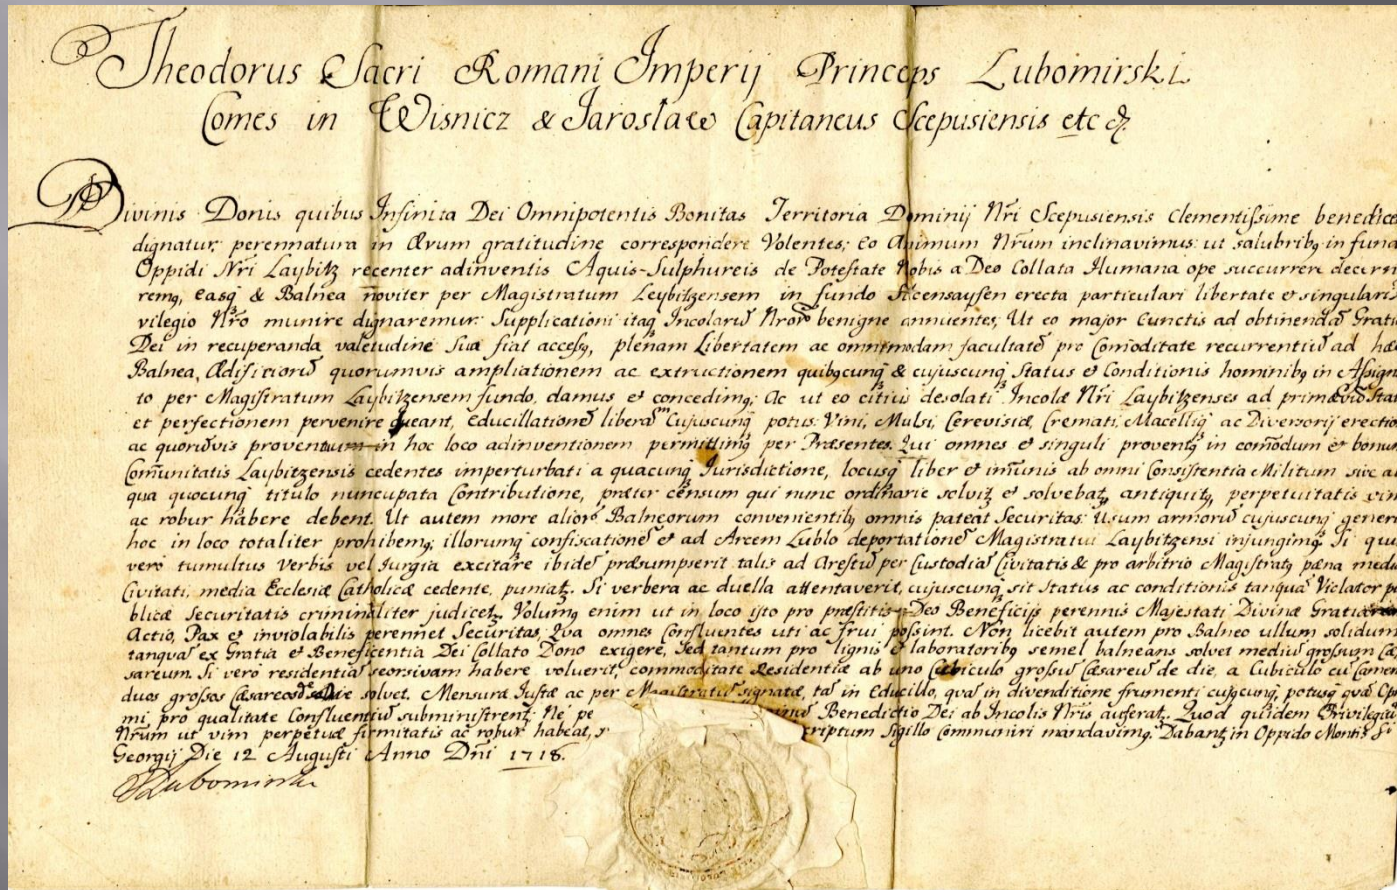 Theodorus Sacri Romani Imperij Princeps Lubomirski
Comes in Wisnicz & Jarosław Capitaneus Scepusiensis etc &
Divinis Donis quibus Infinita Dei Omnipotentis Bonitas Territoria Dominij Nr̃i Scepusiensis Clementissime benedice
dignatur; perennatura in Ævum gratitudine correspondere Volentes; eo Animum Nr̃um inclinavimus: ut salubribq in fund
Oppidi Nr̃i Laybitz recenter adinventis Aquis-Sulphureis de Potestate Nobis a Deo Collata Humana ope succurrere decern
remq, easq & Balnea noviter per Magistratum Leybitzensem in fundo erecta particulari libertate et singulari
vilegio Nr̃o munire dignaremur: Supplicationi itaq Incolarũ Nror̃ benigne annuentes, Ut eo major Cunctis ad obtinendã Grati
Dei in recuperanda valetudine sua fiat accesq, plenam Libertatem ac omnimodam facultatẽ pro Com̃oditate recurrentiũ ad hæ
Balnea, Ædificiorũ quorumvis ampliationem ac extructionem quibqcunq & cujuscunq Status et Conditionis hominibq in Assign
to per Magistratum Laybitzensem fundo, damus et concedimq; Ac ut eo citius desolati Incolæ Nr̃i Laybitzenses ad primævũ Stat
et perfectionem pervenire queant, Educillationẽ liberã Cujuscunq potus: Vini, Mulsi, Cerevisiæ, Cremati, Macelliq ac Diversorij erectio
ac quorũvis proventuum in hoc loco adinventionem permittimq per Præsentes. Qui omnes et singuli proventq in com̃odum et bonum
Com̃unitatis Laybitzensis cedentes imperturbati a quacunq Jurisdictione, locusq liber et im̃unis ab omni Consistentia Militum sive a
qua quocunq titulo nuncupata Contributione, præter censum qui nunc ordinarie solvitz et solvebatz antiquitq, perpetuitatis vim
ac robur habere debent. Ut autem more alior̃ Balneorum convenientibq omnis pateat Securitas: Usum armorũ cujuscunq gener
hoc in loco totaliter prohibemq; illorumq confiscationẽ et ad Arcem Lublo deportationẽ Magistratui Laybitzensi injungimq. Si qui
vero tumultus Verbis vel Jurgia excitare ibidẽ præsumpserit talis ad Arestũ per Custodiã Civitatis & pro arbitrio Magistratq pæna media
Civitati, media Ecclesiæ Catholicæ cedente, puniatz. Si verbera ac duella attentaverit, cujuscunq sit Status ac conditionis tanquã Violator p
blicæ Securitatis criminaliter judicetz. Volumq enim ut in loco isto pro præstitis Deo Beneficijs perennis Majestati Divinæ Gratiarum
Actio, Pax et inviolabilis perennet Securitas, Qua omnes Confluentes uti ac frui possint. Non licebit autem pro Balneo ullum solidum
tanquã ex Gratia et Beneficentia Dei Collato Dono exigere, Sed tantum pro lignis et laboratoribq semel balneans solvet mediũ grossum Cæ
sareum. Si vero residentiã seorsivam habere voluerit, commoditate Residentiæ ab uno Cubiculo grossũ Cæsareũ de die, a Cubiculo cũ Camer
duos grossos Cæsareos de die solvet. Mensura Justæ ac per Magistratũ signatæ, tã in Educillo, quã in divenditione frumenti cujscunq, potusq
mi, pro qualitate Confluentiũ subministrentz: Ne pe Benedictio Dei ab Incolis Nr̃is auferatz. Quod quidem Privilegiũ
Nr̃um ut vim perpetuæ firmitatis ac robur habeat, criptum Sigillo Communiri mandavimq. Dabantz in Oppido Montis S
Georgij Die 12 Augusti Anno Dñi 1718.
Lubomirski